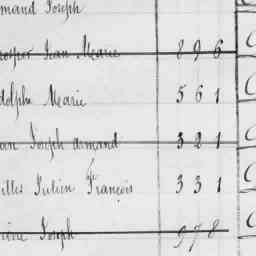 mand Joseph
rosper Jean Marie 896
dolphe Marie 561
an Joseph armand 321
illes Julien François 331
Joseph 978